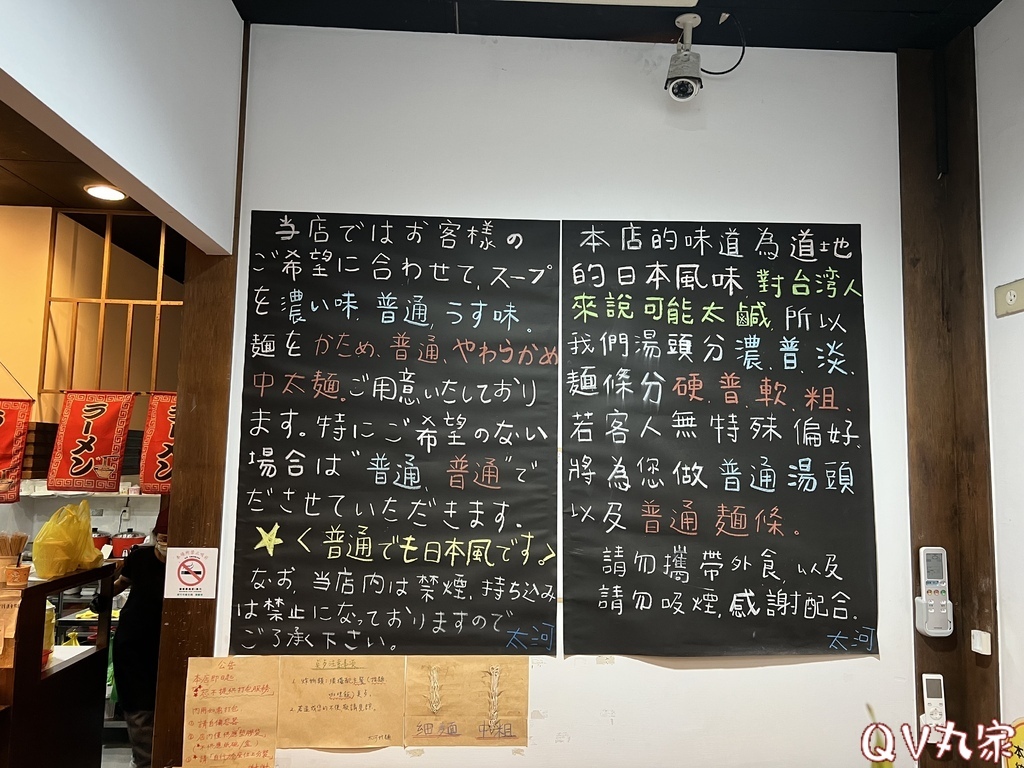 当店ではお客様の
ご希望に合わせて、スープ
を濃い味、普通、うす味。
麺をかため、普通、やわらかめ
中太麺。ご用意いたしており
ます。特にご希望のない
場合は"普通、普通"で
ださせていただきます。
☆く普通でも日本風です♪
なお、当店内は禁煙、持ち込み
は禁止になっておりますので
ご了承下さい。 太河
本店的味道為道地
的日本風味 對台湾人
來說可能太鹹, 所以
我們湯頭分濃、普、淡、
麵條分硬、普、軟、粗、
若客人無特殊偏好、
將為您做普通湯頭
以及普通麵條。
請勿攜帶外食,以及
請勿吸煙,感謝配合。
太河
ラーメン
公告
細麵 中粗
QV丸家